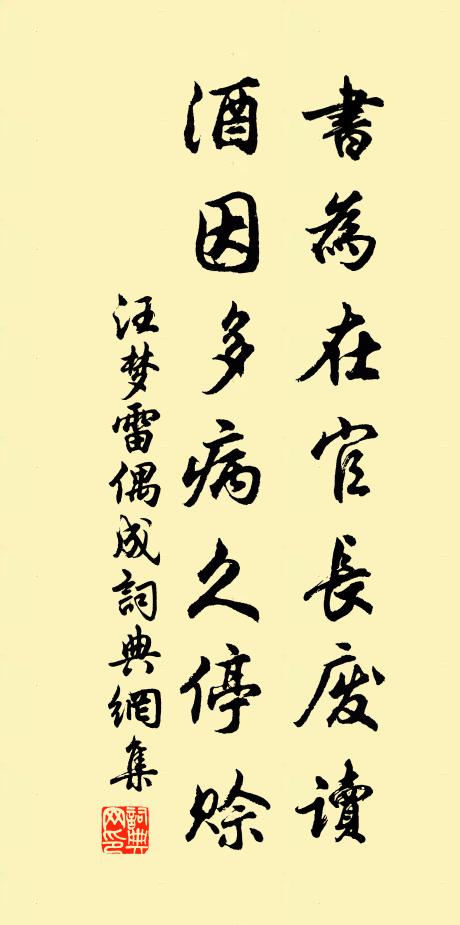 書為在官長废讀
酒因多病久停赊
汪梦雷偶成詞典網集
詞典网印